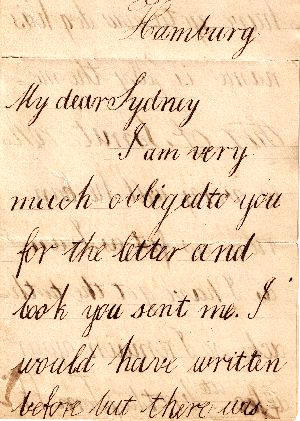 Hamburg
My dear Sydney
I am very
much obliged to you
for the letter and
book you sent me. I
would have written
before but there was